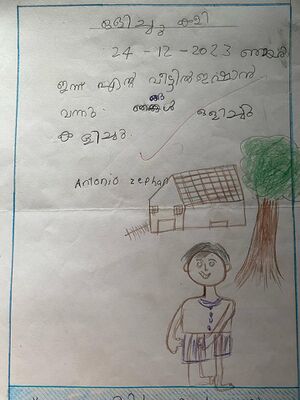 ഒളിച്ചു കളി
24-12-2023 ഞായർ
ഇന്ന് എന്റെ വീട്ടിൽ ഇഷാൻ
വന്നു. ഞങ്ങൾ ഒളിച്ചു
കളിച്ചു.
Antonio zephan